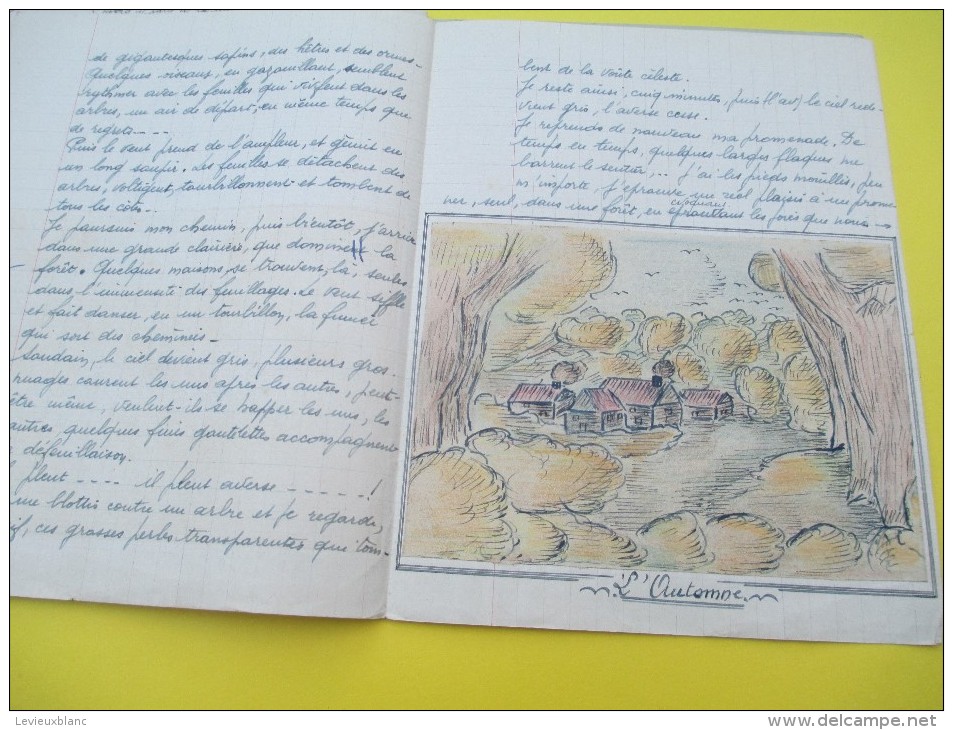 de gigantesques sapins, des hêtres et des ormes-
Quelques oiseaux, en gazouillant, semblent
rythmer avec les feuilles qui vivent dans les
arbres, un air de départ, en même temps que
de regrets - - -
Puis le vent prend de l'ampleur, et gémit en
un long soupir. Les feuilles se détachent des
arbres, voltigent, tourbillonnent et tombent de
tous les côtés..
Je poursuis mon chemin, puis bientôt, j'arrive
dans une grande clairière, que domine la
forêt. Quelques maisons, se trouvent, là, seules
dans l'immensité des feuillages. Le vent siffle
et fait danser, en un tourbillon, la fumée
qui sort des cheminées -
Soudain, le ciel devient gris, plusieurs gros
nuages courent les uns après les autres, peut-
être même, veulent-ils se happer les uns, les
autres, quelques fines goutelettes accompagnent
défeuillaison.
pleut - - - - il pleut averse - - - - - !
me blottis contre un arbre et je regarde,
ces grosses perles transparentes qui tom-
bent de la voûte céleste.
Je reste ainsi, cinq minutes, puis (l'av) le ciel rede-
vient gris, l'averse cesse.
Je reprends de nouveau ma promenade. De
temps en temps, quelques larges flaques me
barrent le sentier, .. j'ai les pieds mouillés, peu
m'importe, j'éprouve un réel plaisir à me prome
ner, seul, dans une forêt, en les joies que nous
L'Automne
Levieuxblanc
www.delcampe.net